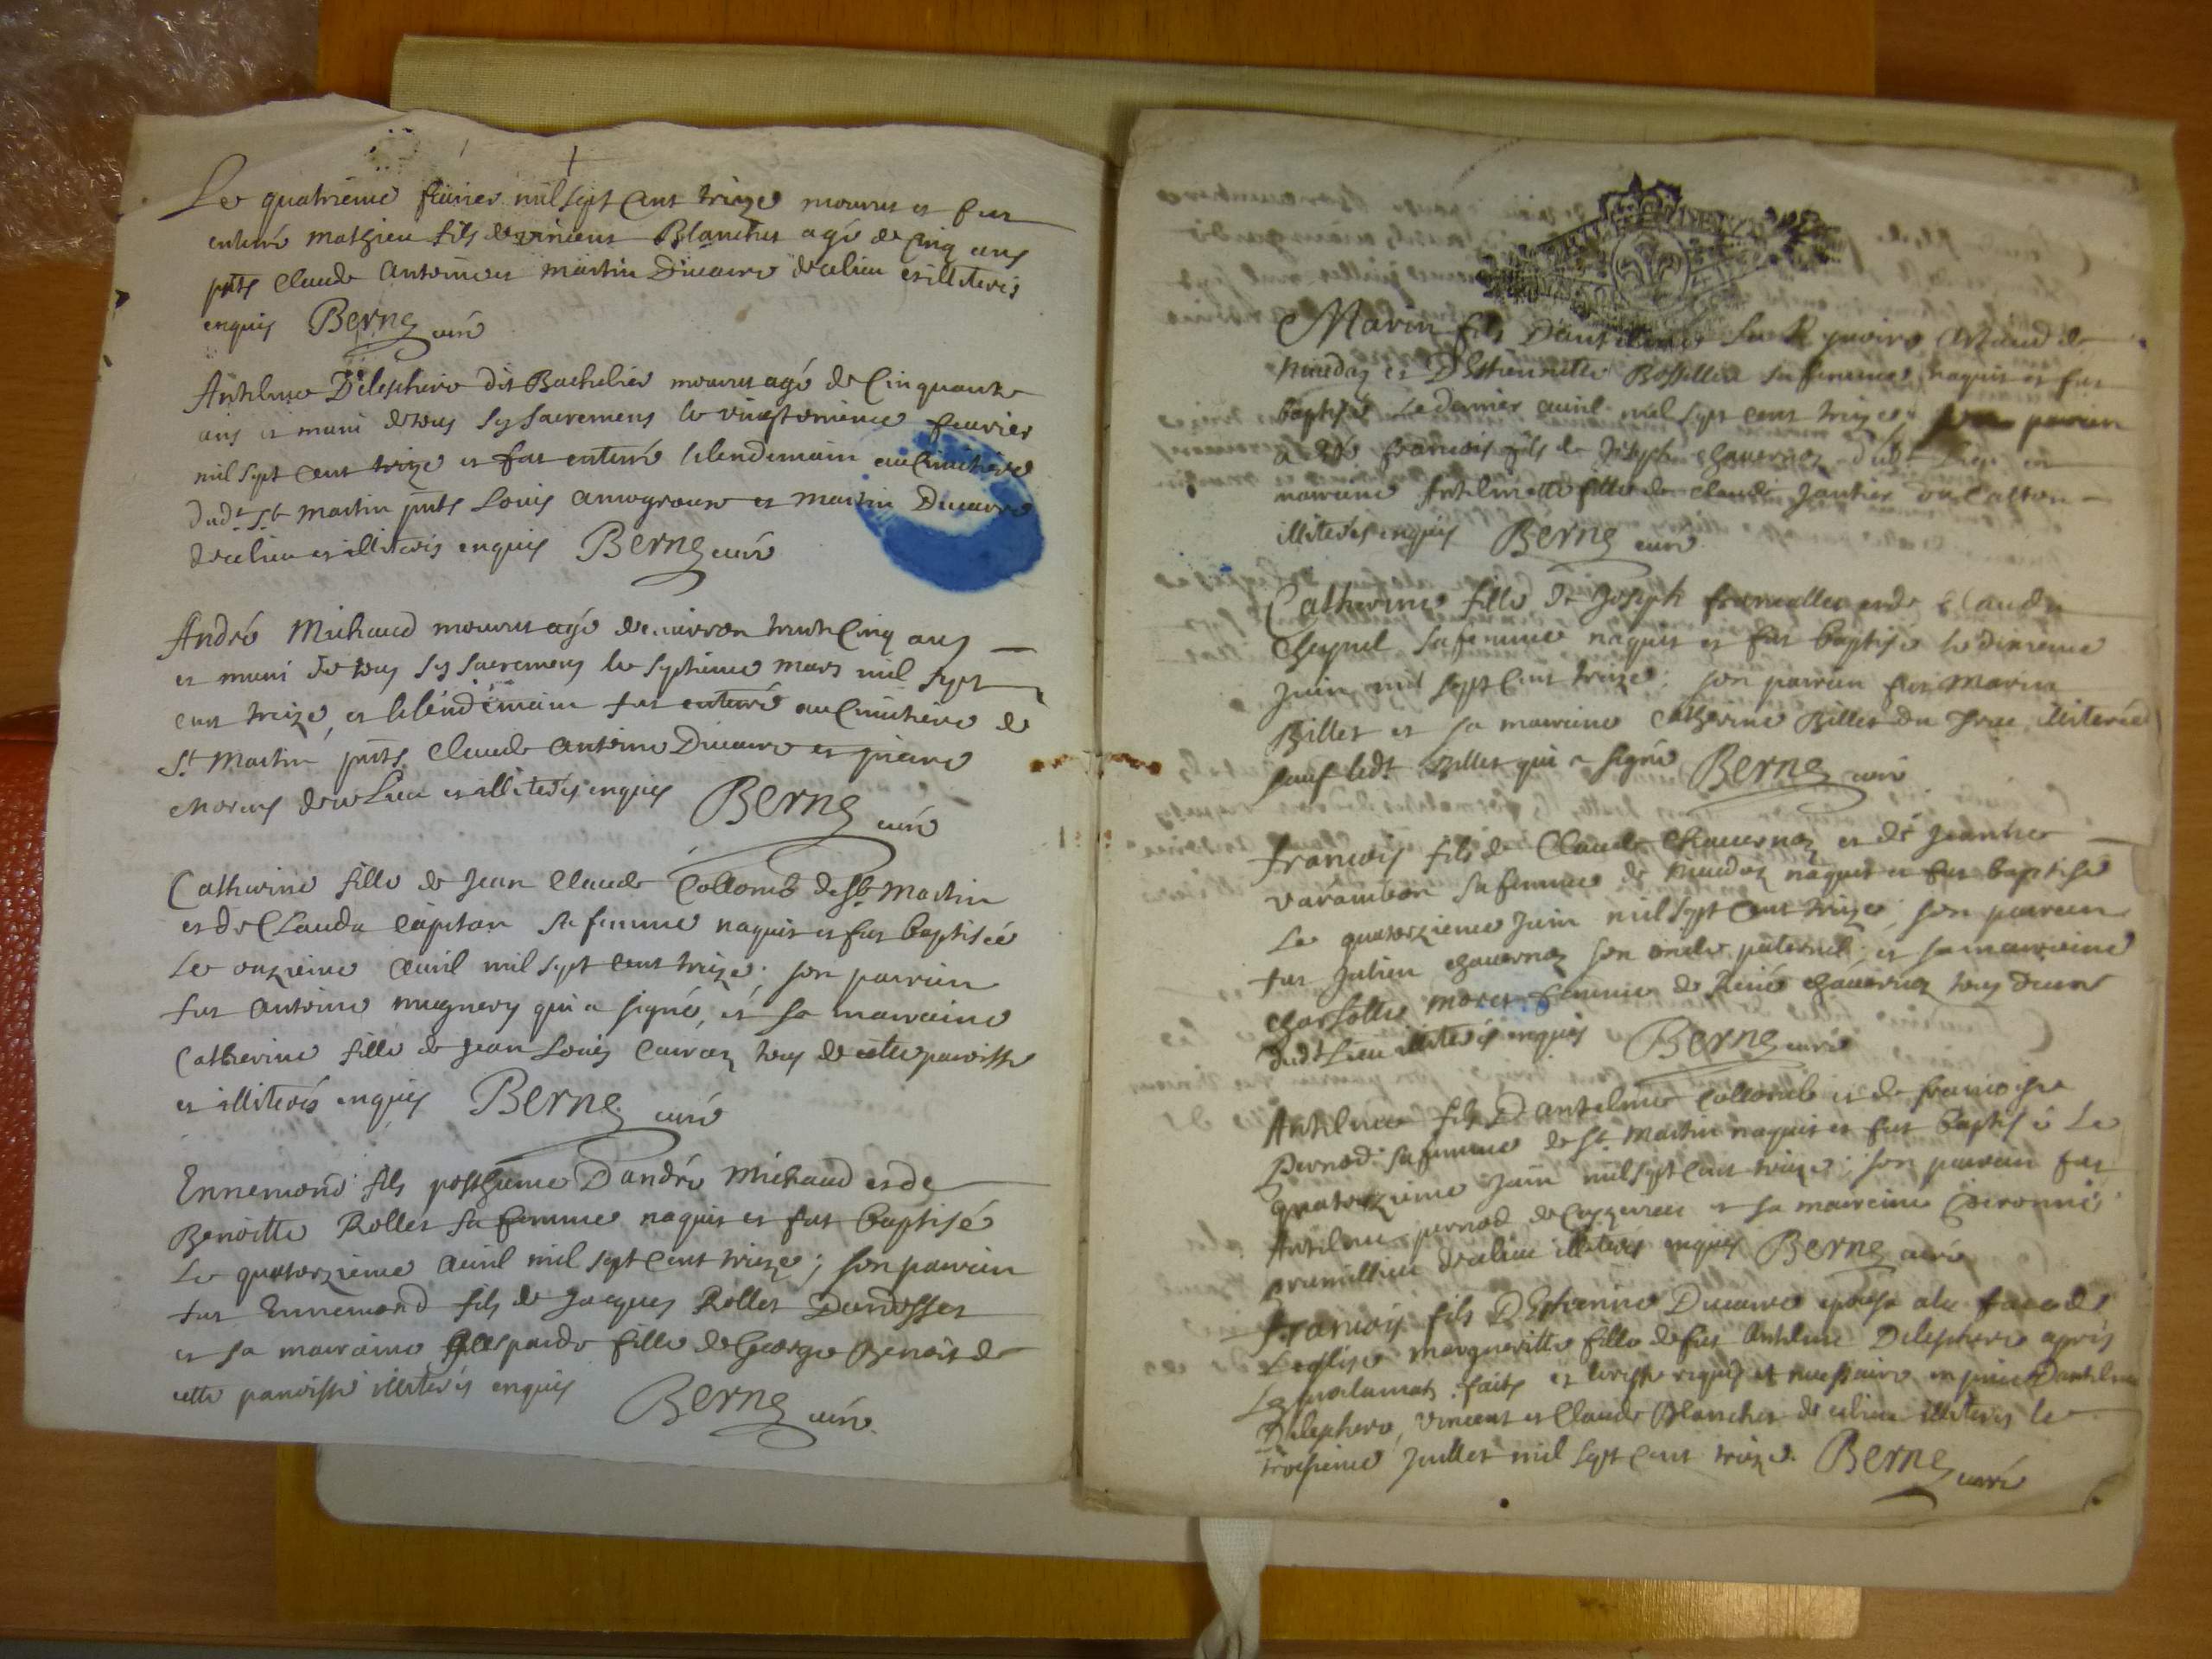 Le quatrieme feurier mil sept cent treize mourut et fut
enterré mathieu fils de vincent Blanchet agé de cinq ans
pnts Claude Antoine et martin Ducaire de ce lieu et illiterés
enquis Berne curé
Antelme Delesphere dit Bachelier mourut agé de Cinquante
ans et muni de tous ses sacremens le feurier
mil sept cent treize et fut enterré le lendemain au Cimetiere
dudt St martin pnts Louis et martin Ducaire
de ce lieu et illiterés enquis Berne curé
André Michaud mourut agé denuiron trente Cinq ans
et muni de tous ses sacremens le septieme mars mil sept
cent treize, et le lendemain fut enterré au Cimetiere de
St Martin pnts Claude Antoine Ducaire et pierre
de ce Lieu et illiterés enquis Berne curé
Catherine fille de Jean Claude Collomb de St Martin
et de Clauda Capitan sa femme naquit et fut baptisée
Le onzieme auril mil sept cent treize; son parrain
fut Antoine mugnery qui a signé, et sa marraine
Catherine fille de Jean Louis Cairaz tous de cette paroisse
et illiterés enquis Berne curé
Ennemond fils posthume Dandré Michaud et de
Benoitte Rollet sa femme naquit et fut baptisé
Le quatorzieme auril mil sept cent treize; son parrain
fut Ennemond fils de Jacques Rollet Dandosset
et sa marraine fille de George Benoit de
cette paroisse illiterés enquis Berne curé
Marin fils Dantelme
et DEsthiennette sa femme naquit et fut
baptisé Le dernier auril mil sept cent treize parrain
a été francois fils de Joseph chauernoz dudt Lieu et
marraine Antelmette fille de claude Jantier
illiterés enquis Berne curé
Catherine fille de Joseph et de Clauda
Chapuel sa femme naquit et fut baptisée le dixieme
Juin mil sept cent treize; son parrain fut Marin
Billet et sa marraine Catherine Billet illiterés
sauf ledt Billet qui a signé Berne curé
francois fils de Claude Chauernoz et de Jeanne
varambon sa femme de naquit et fut baptisé
Le quatorzieme Juin mil sept cent treize; son parrain
fut Julien chauernoz son oncle paternel et sa marraine
charlotte moret femme de René chauernoz tous deux
dudt Lieu illiterés enquis Berne curé
Antelme fils Dantelme Collomb et de francoise
Pernod sa femme de St Martin naquit et fut baptisé Le
quatorzieme Juin mil sept cent treize; son parrain fut
Antelme pernod de et sa marraine
de ce lieu illiterés enquis Berne curé
francois fils DEstienne Ducaire epousa a la face de
Leglise marguerite fille de fut Antelme Delesphere apres
Les proclamats faits et en pnce Dantelme
Delesphere, vincent et Claude Blanchet de ce lieu illiterés le
troisieme Juillet mil sept cent treize. Berne curé